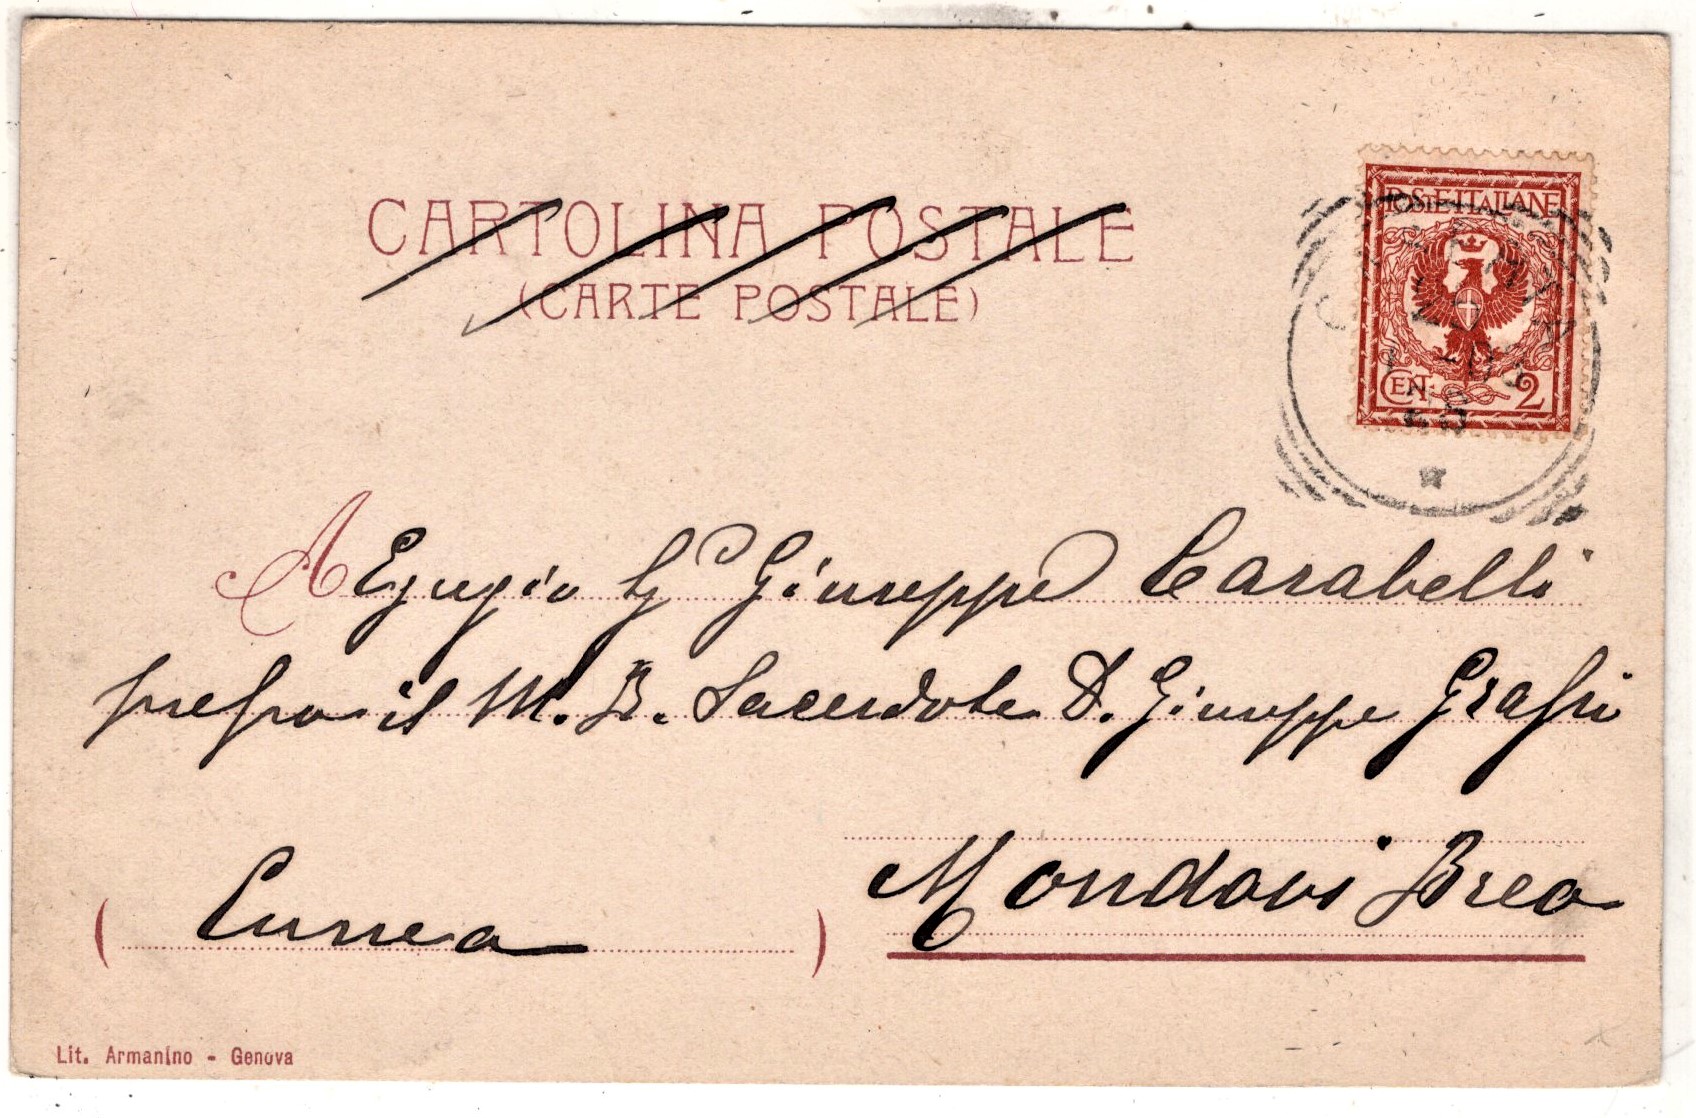 CARTOLINA POSTALE
(CARTE POSTALE)
POSTE ITALIANE
CENT. 2
A Egregio Sg Giuseppe Carabelli
presso il M. R. Sacerdote D. Giuseppe
Mondovi Breo
( Cuneo )
Lit. Armanino - Genova